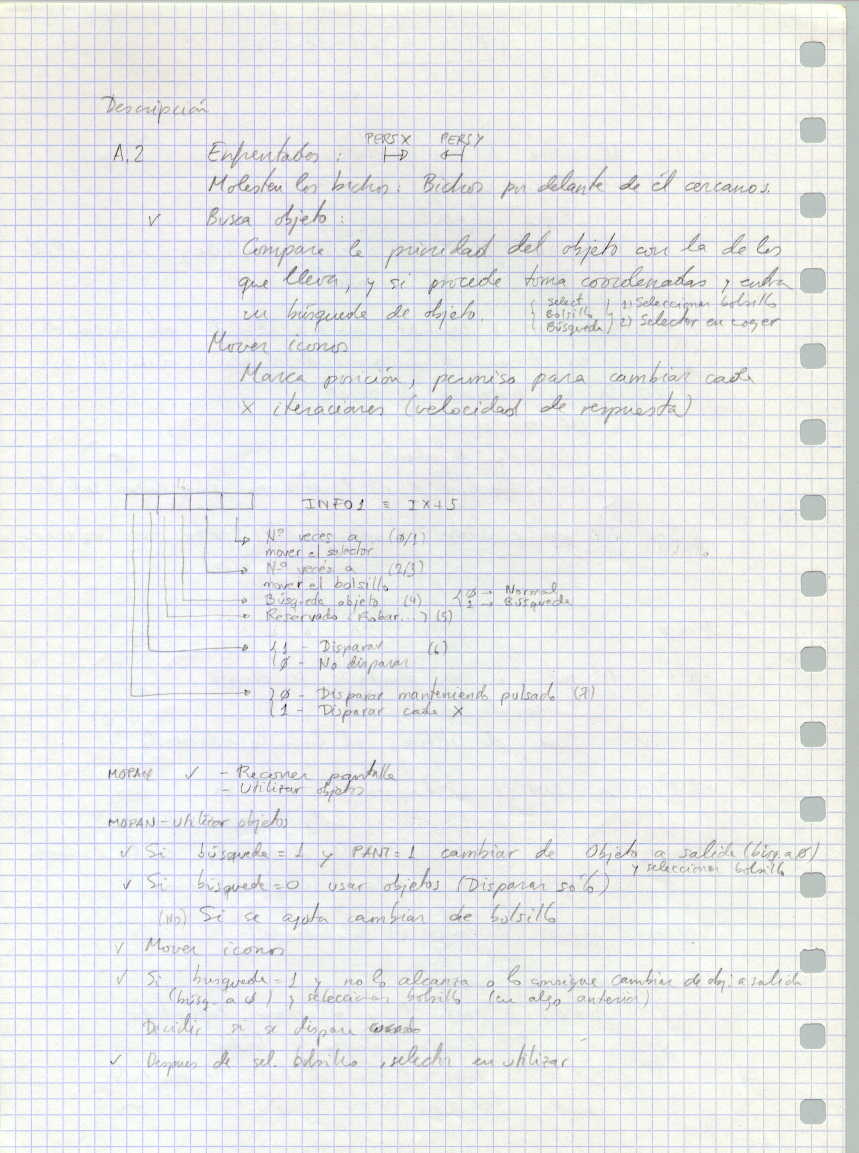 Descripción
PERSX PERSY
A.2 Enfrentados :
Molestan los bichos : Bichos por delante de él cercanos.
✓ Busca objeto :
Compara la prioridad del objeto con la de los
que lleva, y si procede toma coordenadas y entra
en búsqueda de objeto. { Select. Bolsillo Búsqueda } 1) Seleccionar bolsillo
2) Selector en coger
Mover iconos
Marca posición, permiso para cambiar cada
X iteraciones (velocidad de respuesta)
INFO1 = IX+5
Nº veces a (0/1)
mover el selector
Nº veces a (2/3)
mover el bolsillo
Búsqueda objeto (4) { Ø → Normal
1 → Búsqueda
Reservado (Robar...) (5)
{ 1 - Disparar (6)
Ø - No disparar
{ Ø - Disparar manteniendo pulsado (7)
1 - Disparar cada X
✓ - Recorrer pantalla
- Utilizar objetos
MOPAN - Utilizar objetos
✓ Si búsqueda = 1 y PANT = 1 cambiar de Objeto a salida (búsq. a Ø)
y seleccionar bolsillo
✓ Si búsqueda = 0 usar objetos (Disparar sólo)
(No) Si se agota cambiar de bolsillo
✓ Mover iconos
✓ Si busqueda = 1 y no lo alcanza o lo consigue cambiar de obj. a salida
(búsq. a Ø) y seleccionar bolsillo (en algo anterior)
Decidir si se dispara
✓ Despues de sel. bolsillo, selector en utilizar